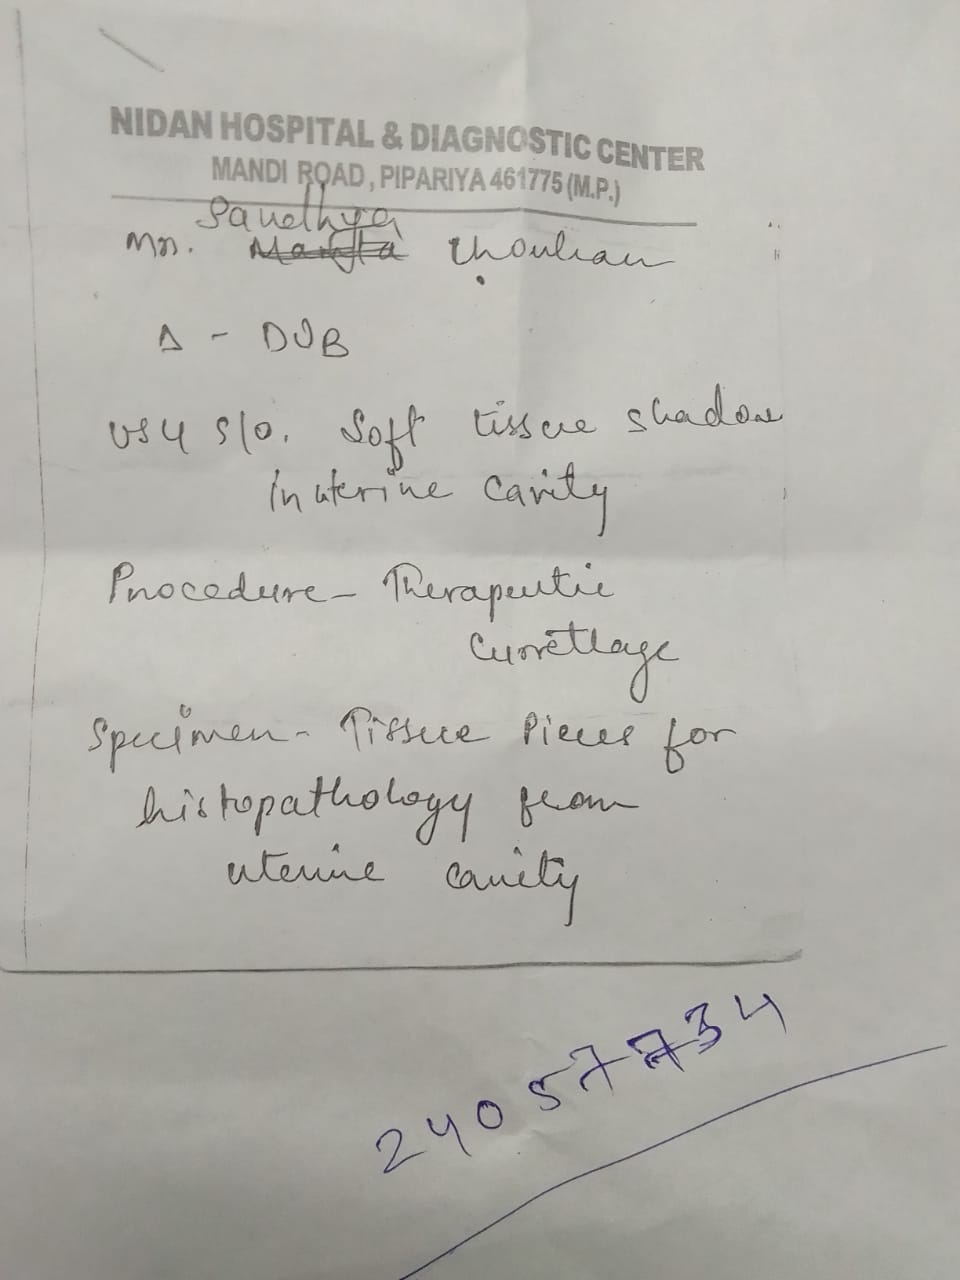 NIDAN HOSPITAL & DIAGNOSTIC CENTER
MANDI ROAD, PIPARIYA 461775 (M.P.)
Sandhya
Mrs. Chouhan
Δ - DUB
USG S/O. Soft tissue shadow
in uterine cavity
Procedure - Therapeutic
Currettage
Specimen - Tissue Pieces for
histopathology from
uterine cavity
24057734